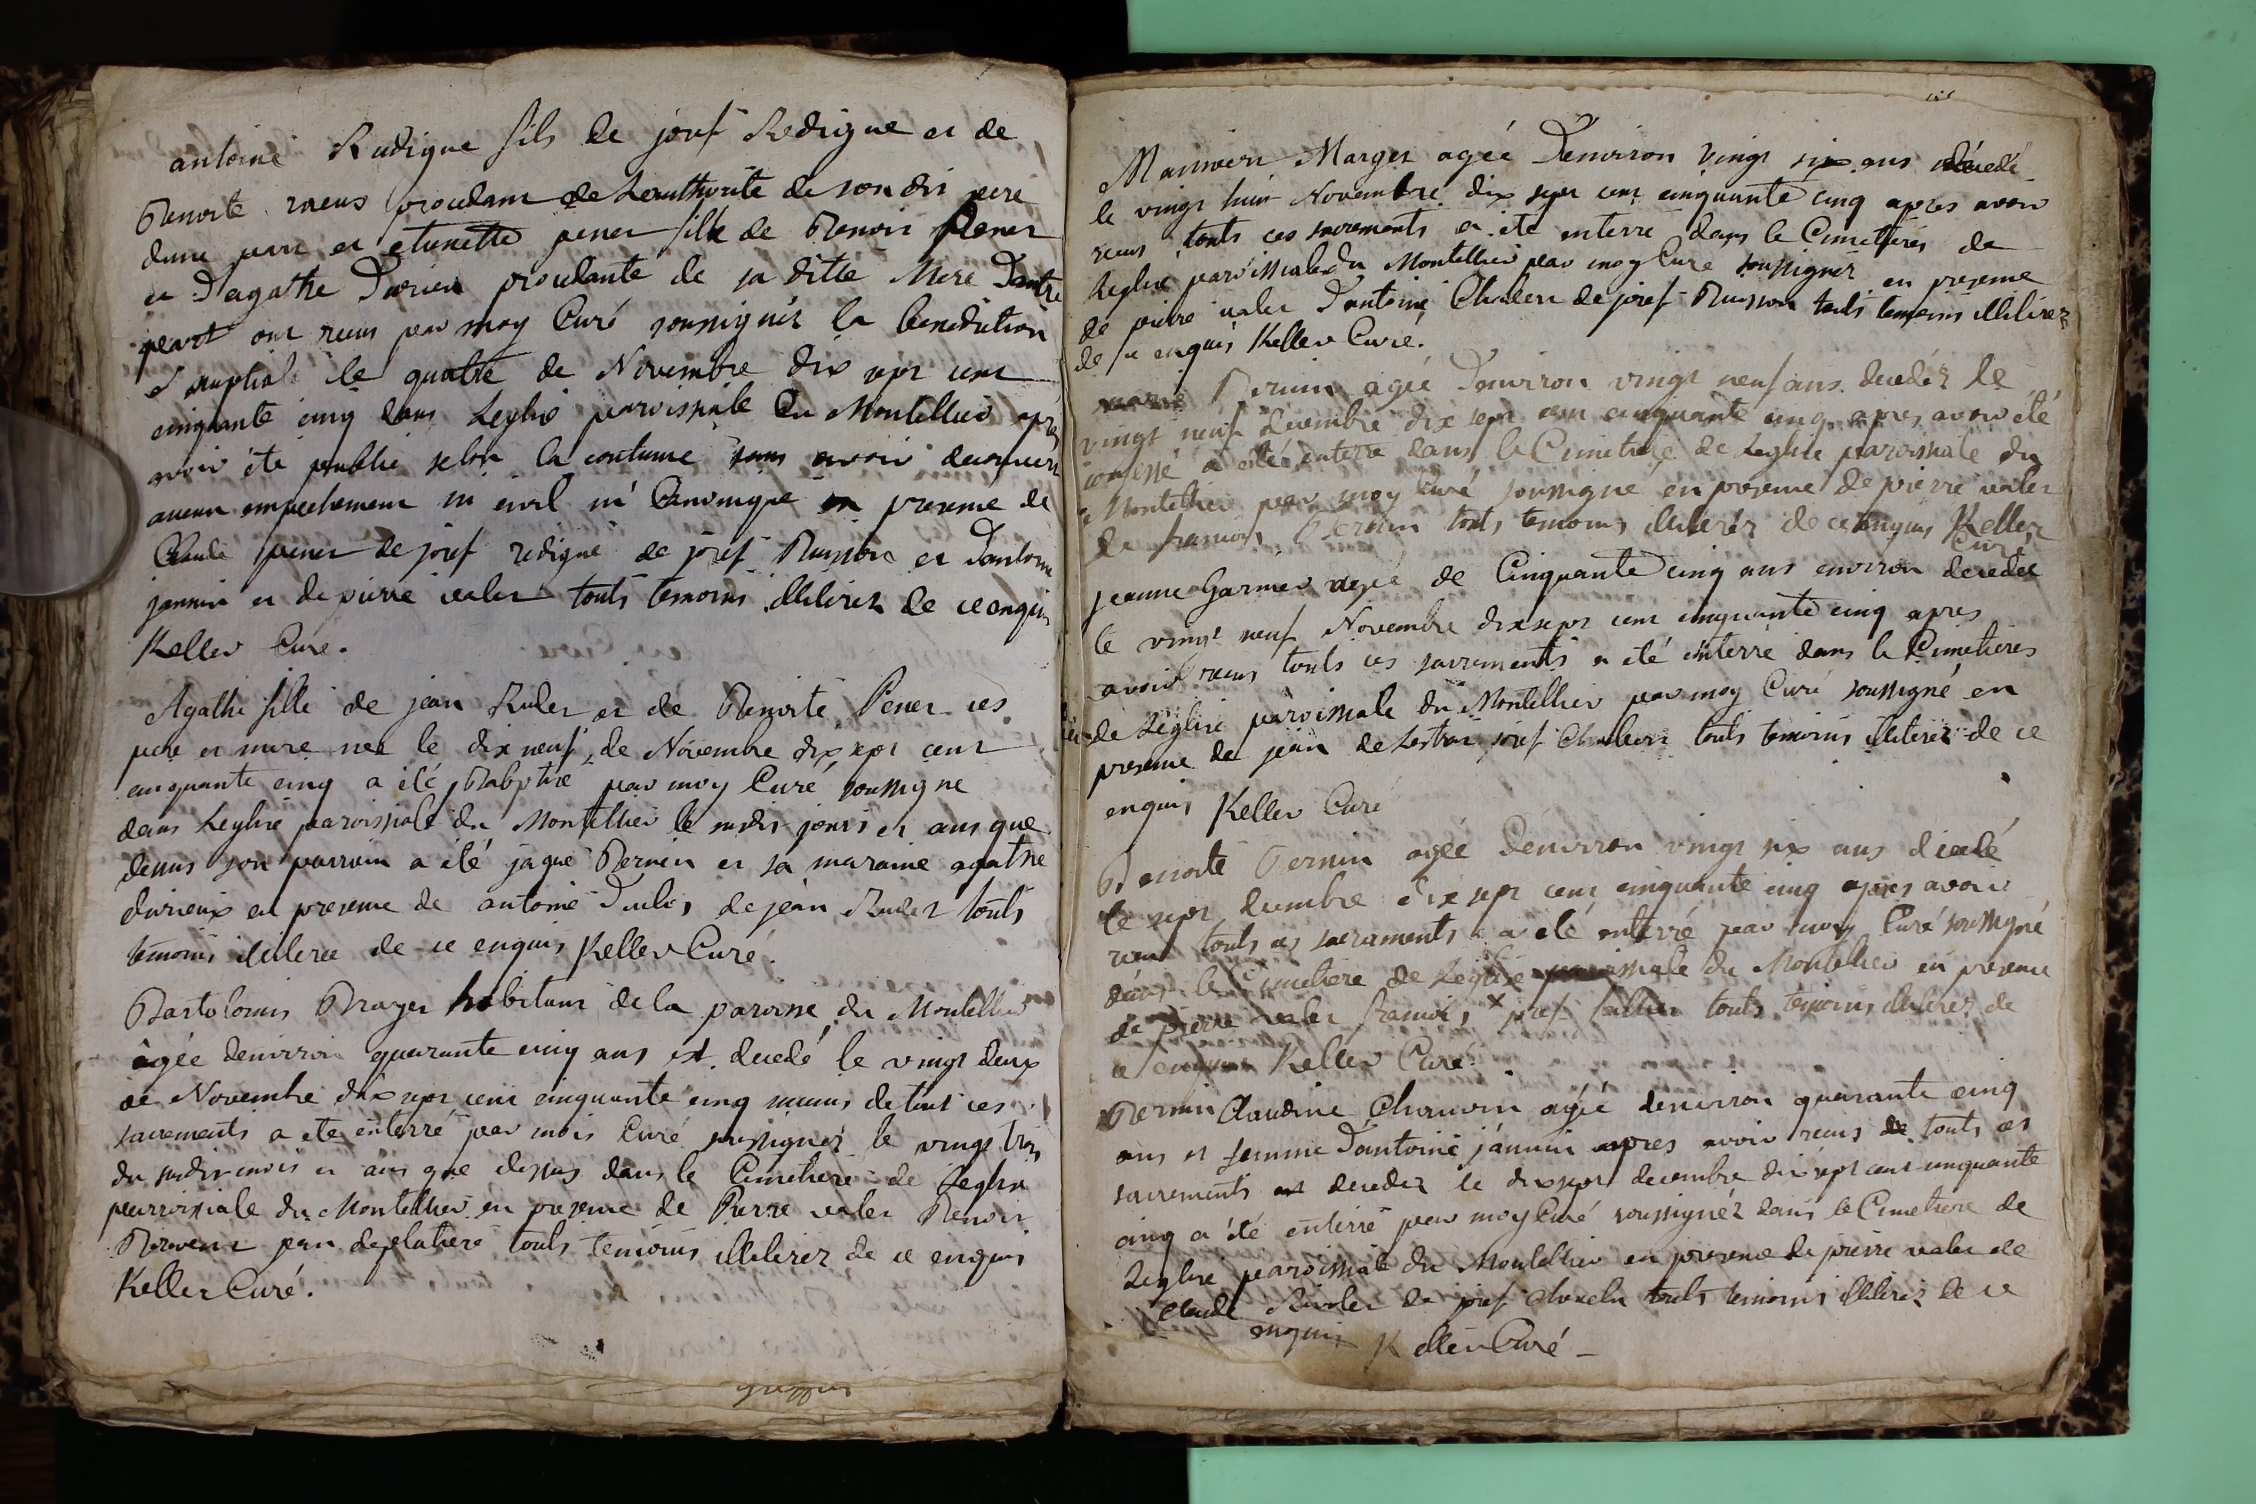 antoine Rudigue fils de josef Redigue et de
Benoite procedant de Lauthorité de son dit pere
dune part et etienette pener fille de Benoit Pener
et Dagathe Durieu procedante de sa ditte Mere Dautre
part ont reçus par moy Curé soussignés la benediction
nuptiale le quatre de Novembre dix sept cent
cinquante cinq dans Leglise paroissiale du Montellier après
avoir été publié selon la coutume sans avoir decouvert
aucun empechement ni civil ni Canonique en presence de
Claude pener de josef redigue de josef Buisson et Dantoine
jannin et de pierre valer touts temoins illiterez de ce enquis
Keller Curé.
Agathe fille de jean Ruler et de Benoite Pener ses
pere et mere née le dix neuf de Novembre dix sept cent
cinquante cinq a été Babptisé par moy Curé soussigne
dans Leglise paroissiale du Montellier le sudis jours et ans que
desus son parrain a été jaque Bernin et sa maraine agathe
durieux en presence de antoine de jean Ruler touts
temoins illiteree de ce enquis Keller Curé.
Bartolomis Brayer habitant de la paroisse du Montellier
agée denviron quarante cinq ans est decedé le vingt deux
de Novembre dix sept cent cinquante cinq munis de tout ces
sacrements a ete enterré par mois Curé soussignez le vingt trois
du sudis mois et ans que dessus dans le Cimetiere de Leglise
parroissiale du Montellier en presence de Pierre valer Benoit
jean deplatiere touts temoins illiterez de ce enquis
Keller Curé.
Marger agée Denviron vingt six ans decedé
le vingt huit Novembre dix sept cent cinquante cinq apres avoir
reçus touts ces sacrements a été enterré dans le Cimetieres de
Leglise paroissiale du Montellier par moy Curé soussignez en presence
de pierre valer Dantoine Chalen de josef Buisson touts temoins illiterez
de ce enquis Keller Curé.
marie Pernin agée Denviron vingt neuf ans decedéz le
vingt neuf decembre dix sept cent cinquante cinq apres avoir été
confessé a été enterré dans le Cimetiere de Leglise paroissiale du
Montellier par moy curé soussigne en presence de pierre valer
de francois Pernin touts temoins illiteréz de ce enquis Keller
Curé
jeanne Garnier agée de Cinquante cinq ans environ decedée
le vingt neuf Novembre dix sept cent cinquante cinq apres
avoir reçus touts ces sacrements a été enterré dans le Cimetieres
de Léglise paroissiale du Montellier par moy Curé soussigné en
presence de jean de Lestra josef touts temoins illiterez de ce
enquis Keller Curé
Benoite Pernin agée denviron vingt six ans decedé
le sept decembre dix sept cent cinquante cinq apres avoir
reçu touts ces sacraments a été enterré par moy Curé soussigné
dans le Cimetiere de Leglise paroissiale du Montellier en presence
de pierre valer francois josef touts temoins illiterez de
ce enquis Keller Curé.
Pernin Claudine Chanvin agée denviron quarante cinq
ans et femme Dantoine jannin apres avoir reçus de touts ces
sacrements est decedez le dix sept decembre dix sept cent cinquante
cinq a été enterré par moy Curé soussignéz dans le Cimetiere de
Leglise paroissiale du Montellier en presence de pierre valer de
Claude de josef touts temoins illiteréz de ce
enquis Keller Curé